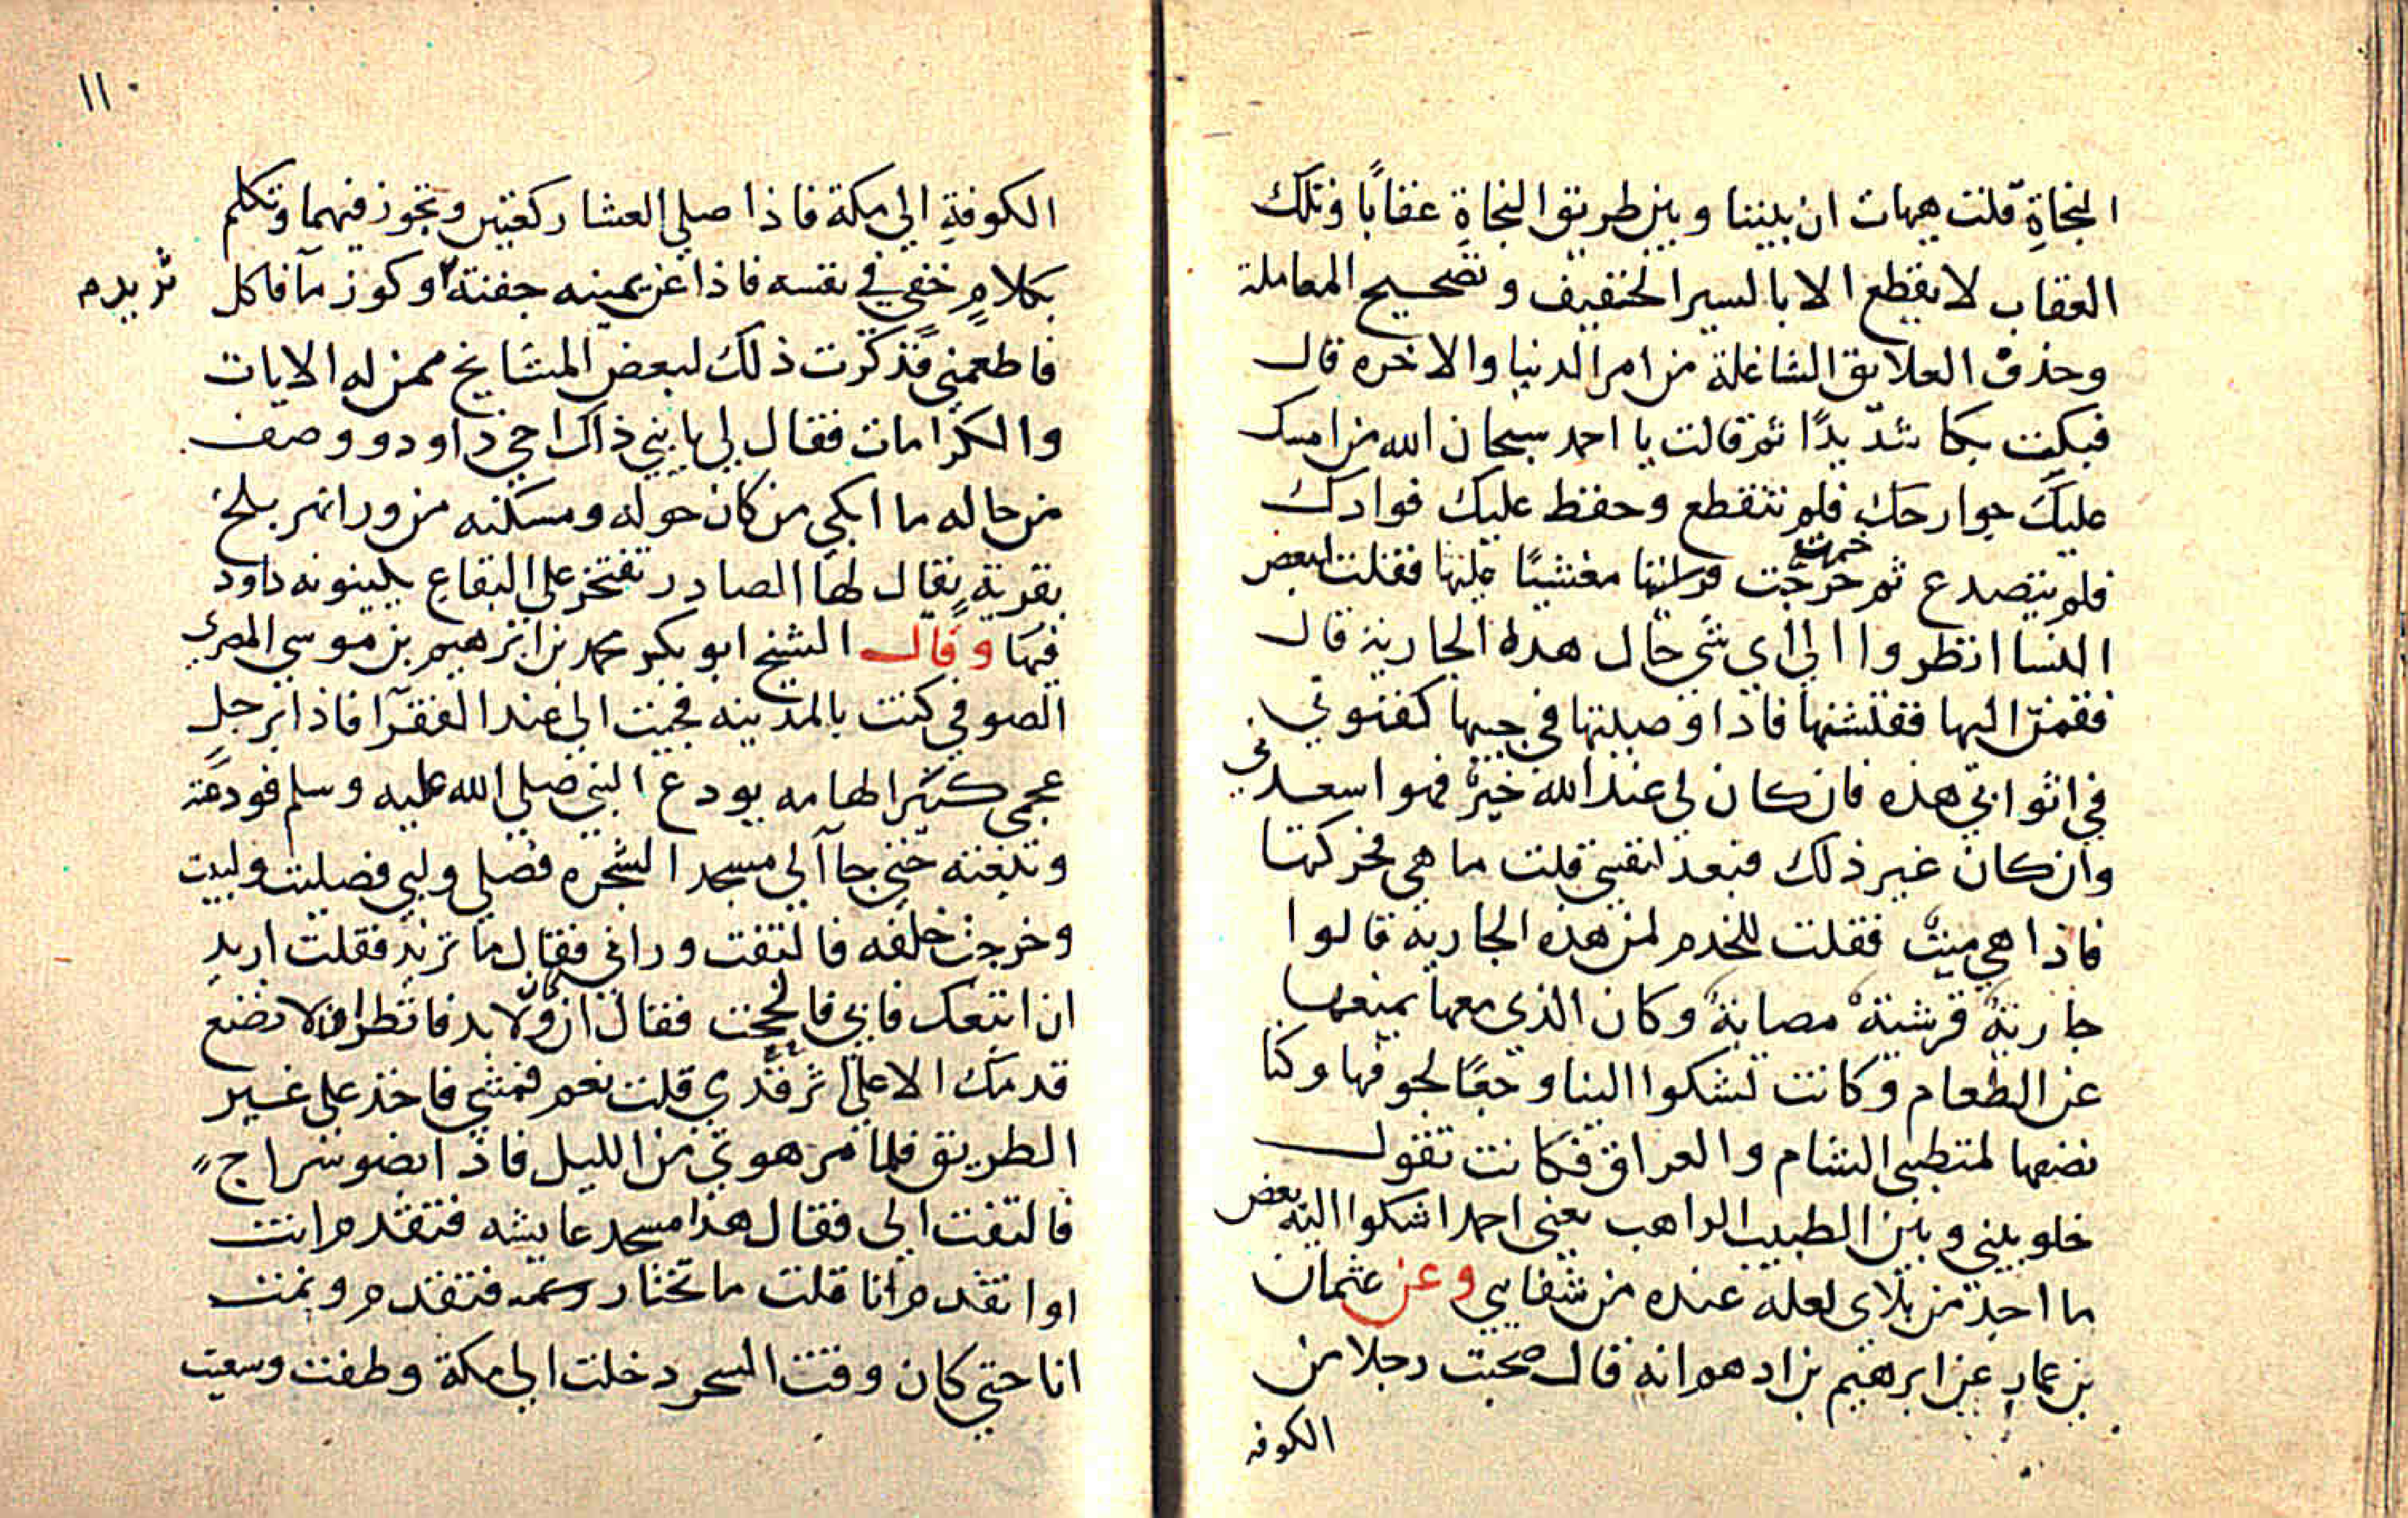 النجاةِ قلت هيهات ان بيننا وبين طريق النجاةِ عقابًا وتلك
العقاب لا يقطع الا بالسير الخفيف وتصحيح المعاملة
وحذف العلايق الشاغلة من امر الدنيا والاخره قال
فبكت بكا شديدًا ثم قالت يا احمد سبحان الله من امسك
عليك جوارحك فلم تتقطع وحفظ عليك فوادك
فلم يتصدع ثم خرجت مغشيًا عليها فقلت لبعض
النسا انظروا الى اي شي حال هذه الجارية قال
فقمن اليها ففتشنها فاذا وصيتها في جيبها كفنوني
في اثوابي هذه فان كان لي عند الله خيرٌ فهو اسعد لي
وان كان غير ذلك فبعد لنفسي قلت ما هي فحركتها
فاذا هي ميتة فقلت للخدم لمن هذه الجارية قالوا
جاريةٌ قرشيةٌ مصابةٌ وكان الذي معها يمنعها
عن الطعام وكانت تشكوا الينا وجعًا لجوفها وكنا
نصفها لمتطببي الشام والعراق فكانت تقول
خلو بيني وبين الطبيب الراهب يعني احمد اشكوا اليه بعض
ما اجد من بلاى لعله عنده من شفايي وعن عثمان
بن عمار عن ابرهيم بن ادهم انه قال صحبت رجلا من
الكوفه
١١٠
الكوفةِ الي مكة فاذا صلي العشا ركعتين وتجوز فيهما وتكلم
بكلامٍ خفي في نفسه فاذا عن يمينه جفنة وكوز مآ فاكل
ثريدم
فاطعمني فذكرت ذلك لبعض المشايخ ممن له الايات
والكرامات فقال لي يا بني ذاك اخي داود ووصف
من حاله ما ابكي من كان حوله ومسكنه من ورا نهر بلخ
بقرية يقال لها الصادر تفتخر علي البقاع بكينونه داود
فيها وقال الشيخ ابو بكر محمد بن ابرهيم بن موسي المصري
الصوفي كنت بالمدينه فجيت الى عند الفقرآ فاذا برجل
عجمي كبير الهامه يودع النبي صلي الله عليه وسلم فودعته
وتبعته حتى جا آلي مسجد الشجره فصلي ولبي فصليت ولبيت
وخرجت خلفه فالتفت وراني فقال ما تريد فقلت اريد
ان اتبعك فابي فالححت فقال ان كان ولا بد فانظر ان لا تضع
قدمك الا علي اثر قدمي قلت نعم فمشي فاخذ على غير
الطريق فلما مر هوي من الليل فاذا بضو سراج
فالتفت الى فقال هذا مسجد عايشه فتقدم انت
او اتقدم انا قلت ما تختار فتقدم ونمت
انا حتي كان وقت السحر دخلت الي مكة وطفت وسعيت